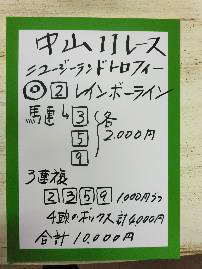 中山11レース
ニュージーランドトロフィー
◎ 2 レインボーライン
馬連 → 3 各
5 2.000円
9
3連複
2 3 5 9 1000円ずつ
4頭のボックス 計4000円
合計 10,000円